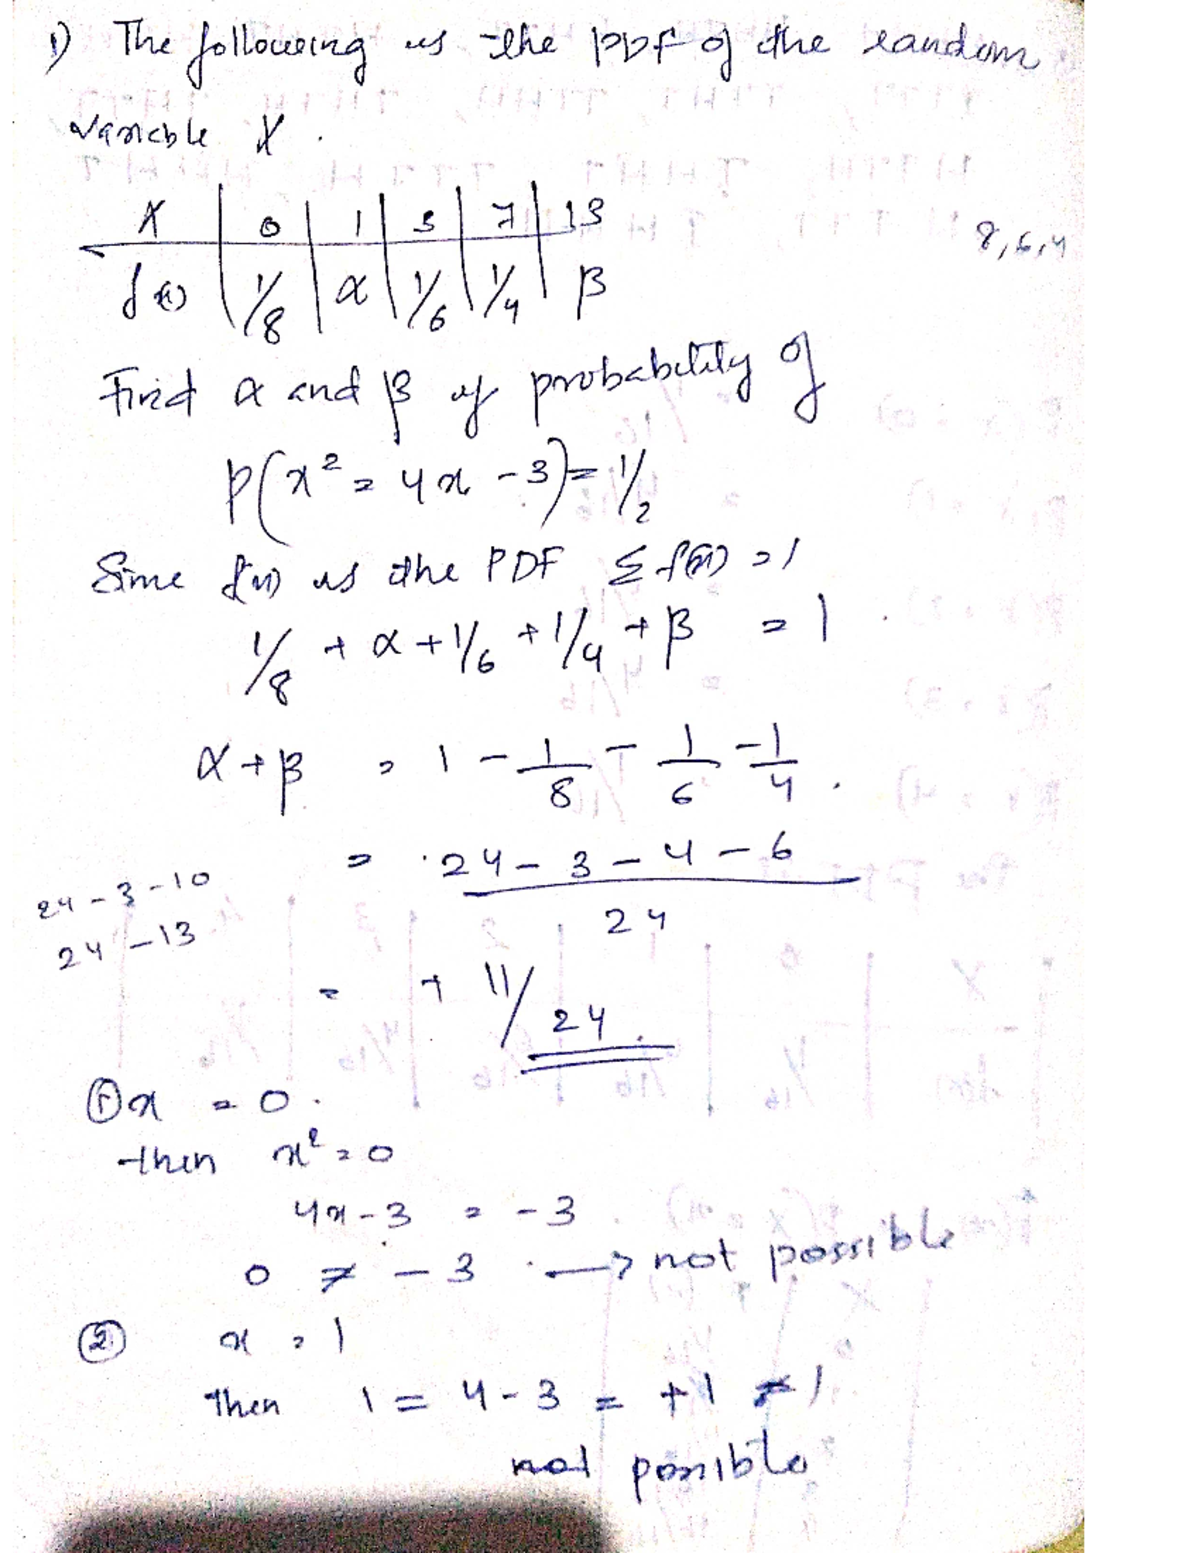 1) The following is the PDF of the random
variable X.
X | 0 | 1 | 3 | 7 | 13
f(x) | 1/8 | α | 1/6 | 1/4 | β
8,6,4
Find α and β if probability of
P(x² = 4x - 3) = 1/2
Since f(x) is the PDF Σ f(x) = 1
1/8 + α + 1/6 + 1/4 + β = 1
α + β = 1 - 1/8 - 1/6 - 1/4.
= 24 - 3 - 4 - 6 / 24
24 - 3 - 10
24 - 13
= + 11/24.
① x = 0.
then x² = 0
4x - 3 = -3
0 ≠ -3 → not possible
② x = 1
Then 1 = 4 - 3 = +1 ≠ 1
not possible